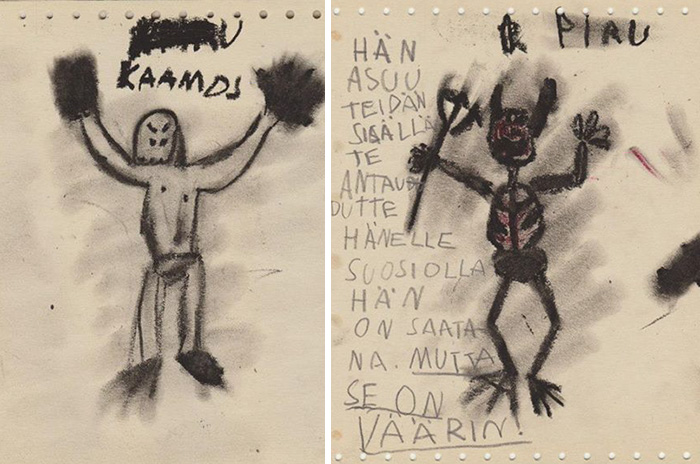 KAAMOS
PIRU
HÄN
ASUU
TEIDÄN
SISÄLLÄ
TE
ANTAU
DUTTE
HÄNELLE
SUOSIOLLA
HÄN
ON SAATA-
NA. MUTTA
SE ON
VÄÄRIN!